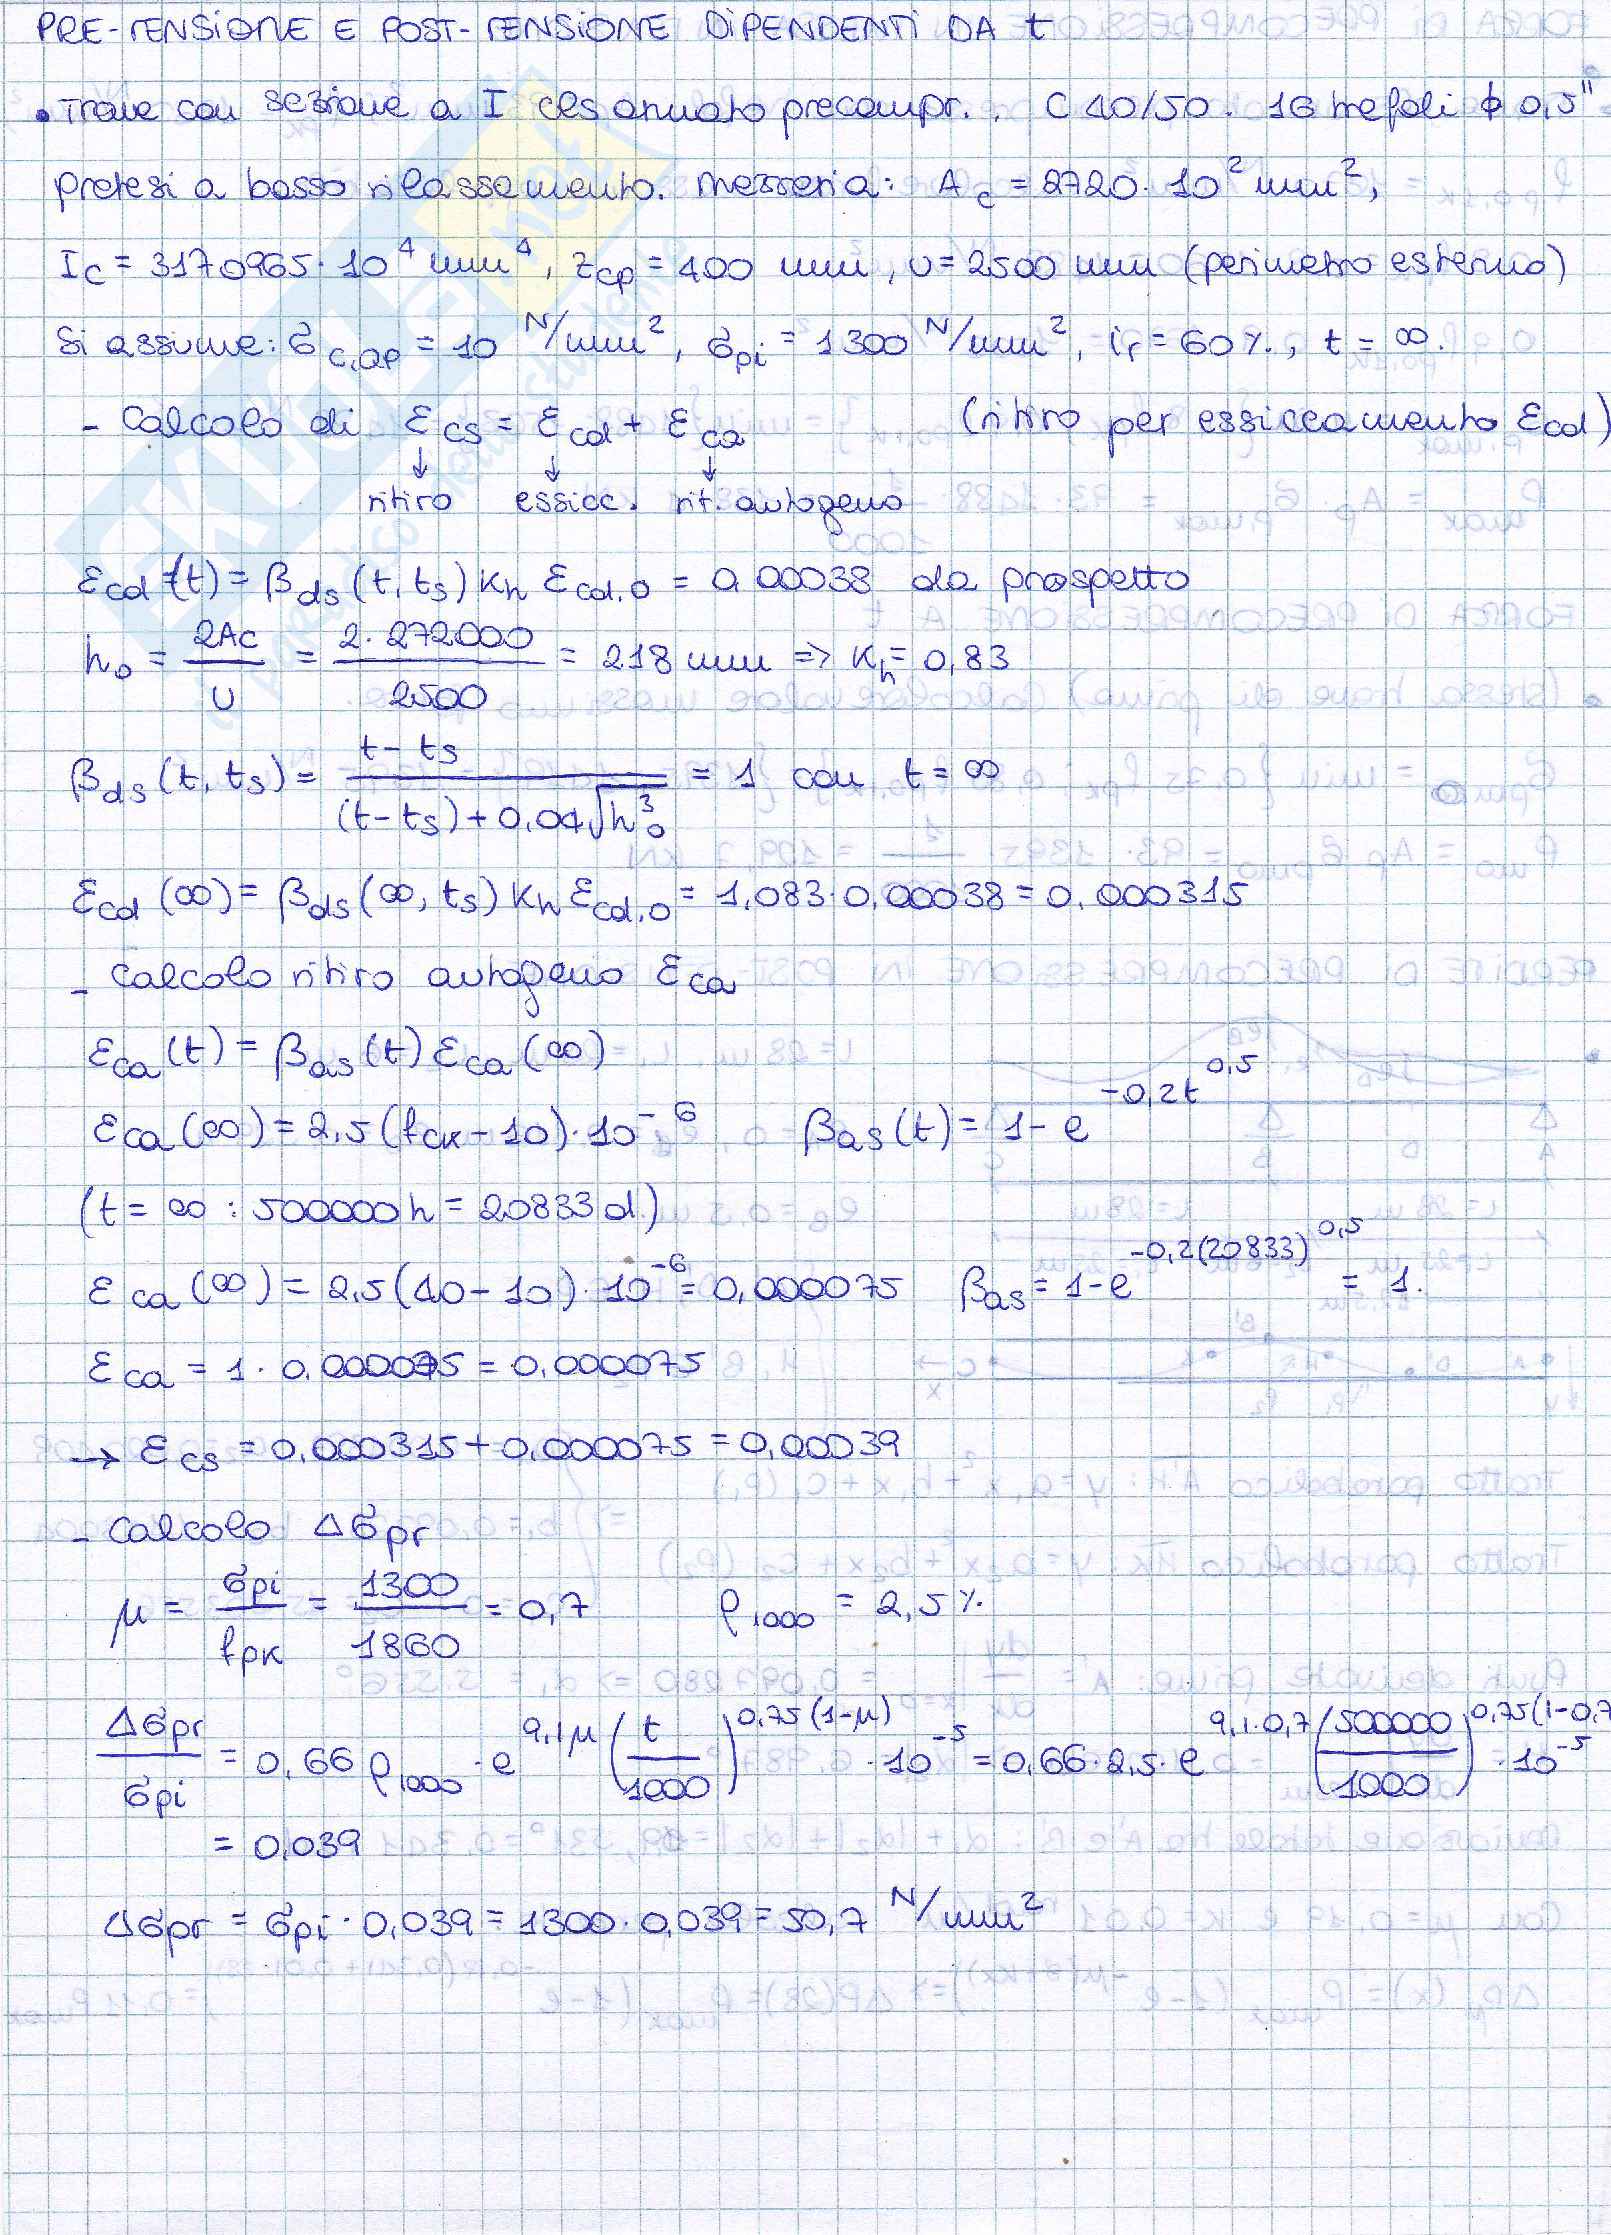 PRE-TENSIONE E POST-TENSIONE DIPENDENTI DA t
• Trave con sezione a I cls armato precompr.. C 40/50. 16 trefoli ϕ 0,5"
pretesi a basso rilassamento. Mezzeria: A_c = 2720·10² mm²,
I_c = 3170965·10⁴ mm⁴, z_cp = 400 mm, u = 2500 mm (perimetro esterno)
Si assume: σ_c,QP = 10 N/mm², σ_pi = 1300 N/mm², ir = 60%, t = ∞.
- Calcolo di ε_cs = ε_cd + ε_ca (ritiro per essiccamento ε_cd)
↓ ↓ ↓
ritiro essicc. rit. autogeno
ε_cd (t) = β_ds (t, ts) k_h ε_cd,0 = 0.00038 da prospetto
h_0 = 2Ac/u = 2·272000/2500 = 218 mm => k_h = 0,83
β_ds (t, ts) = (t - ts)/((t - ts) + 0,04√h_0³) = 1 con t = ∞
ε_cd (∞) = β_ds (∞, ts) k_h ε_cd,0 = 1,083·0,00038 = 0,000315
- Calcolo ritiro autogeno ε_ca
ε_ca (t) = β_as (t) ε_ca (∞)
ε_ca (∞) = 2,5 (fck - 10)·10⁻⁶ β_as (t) = 1 - e^(-0,2t^0,5)
(t = ∞ : 500000 h = 20833 d)
ε_ca (∞) = 2,5 (40 - 10)·10⁻⁶ = 0,000075 β_as = 1 - e^(-0,2(20833)^0,5) = 1.
ε_ca = 1 · 0,000075 = 0,000075
→ ε_cs = 0,000315 + 0,000075 = 0,00039
- Calcolo Δσ_pr
μ = σ_pi/f_pk = 1300/1860 = 0,7 ρ_1000 = 2,5%
Δσ_pr/σ_pi = 0,66 ρ_1000 · e^(9,1μ) (t/1000)^(0,75(1-μ)) · 10⁻⁵ = 0,66·2,5·e^(9,1·0,7) (500000/1000)^(0,75(1-0,7) · 10⁻⁵
= 0,039
Δσ_pr = σ_pi · 0,039 = 1300 · 0,039 = 50,7 N/mm²